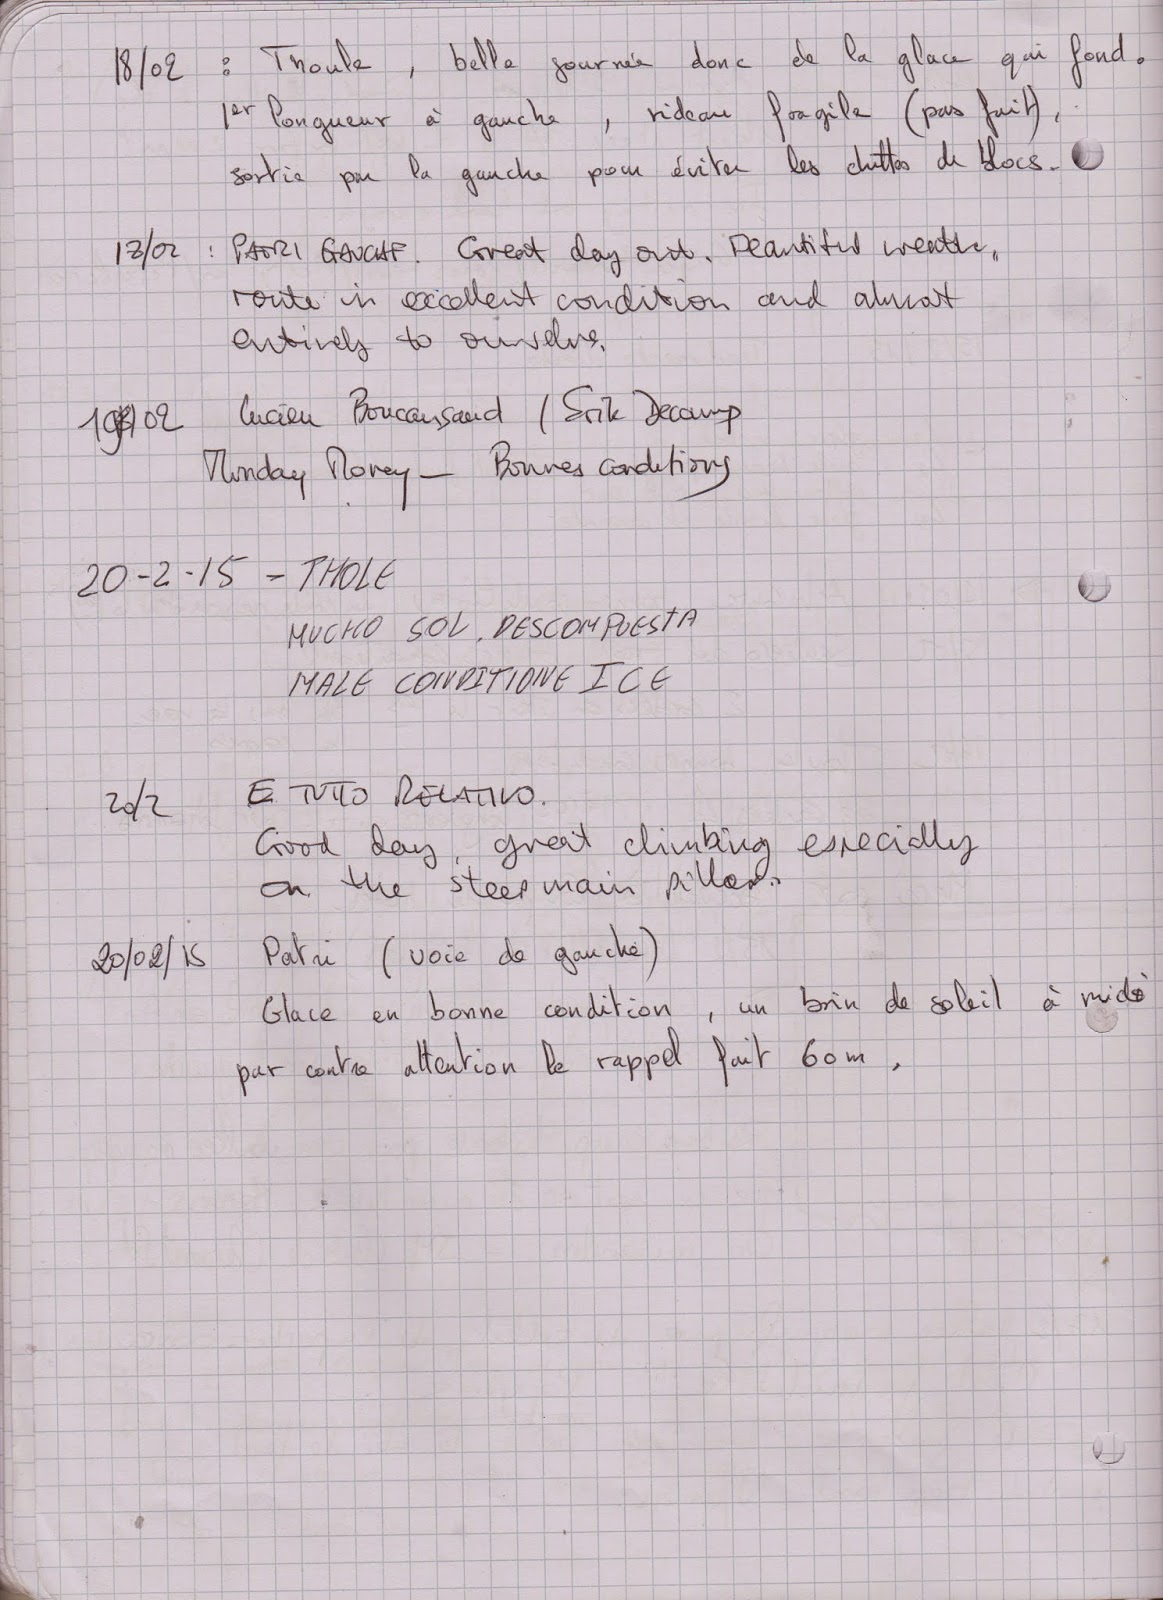 18/02 : Thoule, belle journée donc de la glace qui fond.
1er longueur à gauche, rideau fragile (pas fait),
sortie par la gauche pour éviter les chuttes de blocs.
17/02 : PATRI GAUCHE. Great day out. Beautiful weather,
route in excellent condition and almost
entirely to ourselves.
19/02 Lucien Boucansaud / Erik Decamp
Monday Money - Bonnes conditions
20-2-15 - THOLE
MUCHO SOL. DESCOMPUESTA
MALE CONDITIONE ICE
20/2 E TUTTO RELATIVO.
Good day, great climbing especially
on the steep main pillar.
20/02/15 Patri (voie de gauche)
Glace en bonne condition, un brin de soleil à midi
par contre attention le rappel fait 60m.